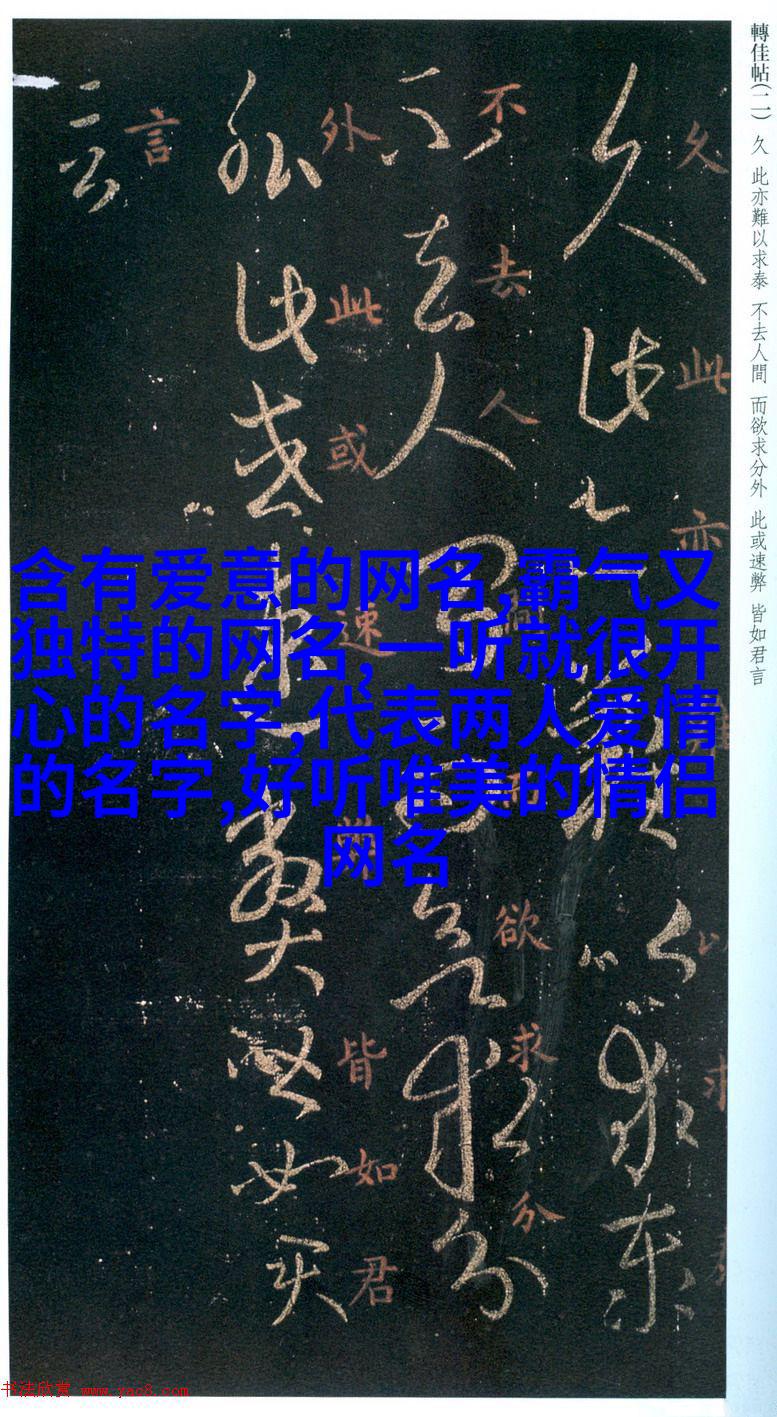 轉佳帖(二) 久 此亦難以求泰 不去人間 而欲求分外 此或速弊 皆如君言
久此亦難以求泰
不去人間而欲求分
外此或速弊皆如君
言
含有爱意的网名,霸气又
独特的网名,一听就很开
心的名字,代表两人爱情
的名字,好听唯美的情侣
网名
书法欣赏 www.yac8.com